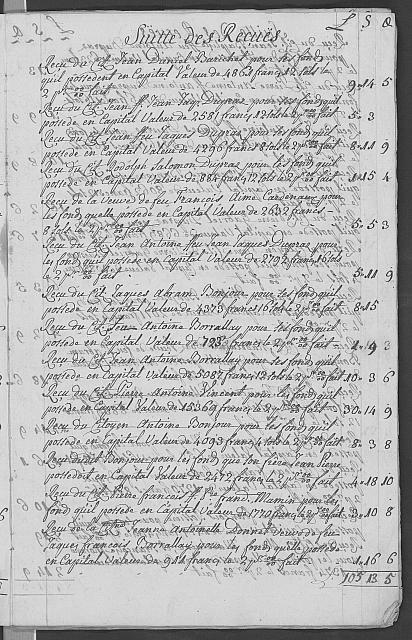 £ S D
Suitte des Recues
Recu du Cit. Jean Daniel Barichat pour les fonds
quil possedent en Capital Valeur de 4861 francs 12 sols le
2 p. %00 fait 9 14 5
Recu du Cit. Jean ff. Jean Jaqs Dupras pour les fonds quil
possede en Capital Valeur de 2581 francs 12 sols le 2 p. %00 fait 5 3
Recu du Cit. Jean feu Jaques Dupras pour les fonds quil
possede en Capital Valeur de 4296 francs 8 sols le 2 p. %00 fait 8 11 9
Recu du Cit. Rodolph Salomon Dupras pour les fonds quil
possede en Capital Valeur de 884 francs 12 sols le 2 p. %00 fait 1 15 4
Recu de la Veuve de feu Francois Aimé Cardenaux pour
les fonds quelle possede en Capital Valeur de 2632 francs
8 sols le 2 p. %00 fait 5 5 3
Recu du Cit. Jean Antoine feu Jean Jaques Dupras pour
les fonds quil possede en Capital Valeur de 2792 francs 16 sols
le 2 p. %00 fait 5 11 9
Recu du Cit. Jaques Abram Bonjour pour les fonds quil
possede en Capital Valeur de 4373 francs 16 sols le 2 p. %00 fait 8 15
Recu du Cit. Jean Antoine Borrallay pour les fonds quil
possede en Capital Valeur de 723 francs le 2 p. %00 fait 1 9 3
Recu du Cit. Jean Antoine Borrallay pour les fonds quil
possede en Capital Valeur de 5087 francs 12 sols le 2 p. %00 fait 10 3 6
Recu du Cit. Pierre Antoine Vincent pour les fonds quil
possede en Capital Valeur de 15369 francs le 2 p. %00 fait 30 14 9
Recu du Citoyen Antoine Bonjour pour les fonds quil
possede en Capital Valeur de 4093 francs 4 sols le 2 p. %00 fait 8 3 8
Recu dudit Bonjour pour les fonds que son frère Jean Pierre
possedoit en Capital Valeur de 2472 francs le 2 p. %00 fait 4 18 10
Recu du Cit. Pierre francois ff. Mamin pour les
fonds quil possede en Capital Valeur de 1770 francs le 2 p. %00 fait 3 10 8
Recu de la Cit. Jeanne Antoinette Donnet Veuve de feu
Jaques francois Borrallay pour les fonds quelle possede
en Capital Valeur de 911 francs le 2 p. %00 fait 1 16 6
105 13 5